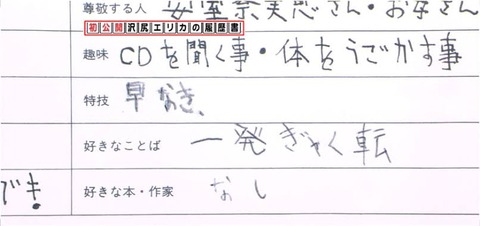 尊敬する人 安室奈美恵さん・お母さん
初公開沢尻エリカの履歴書
趣味 CDを聞く事・体をうごかす事
特技 早なき、
好きなことば 一発ぎゃく転
でき。 好きな本・作家 なし